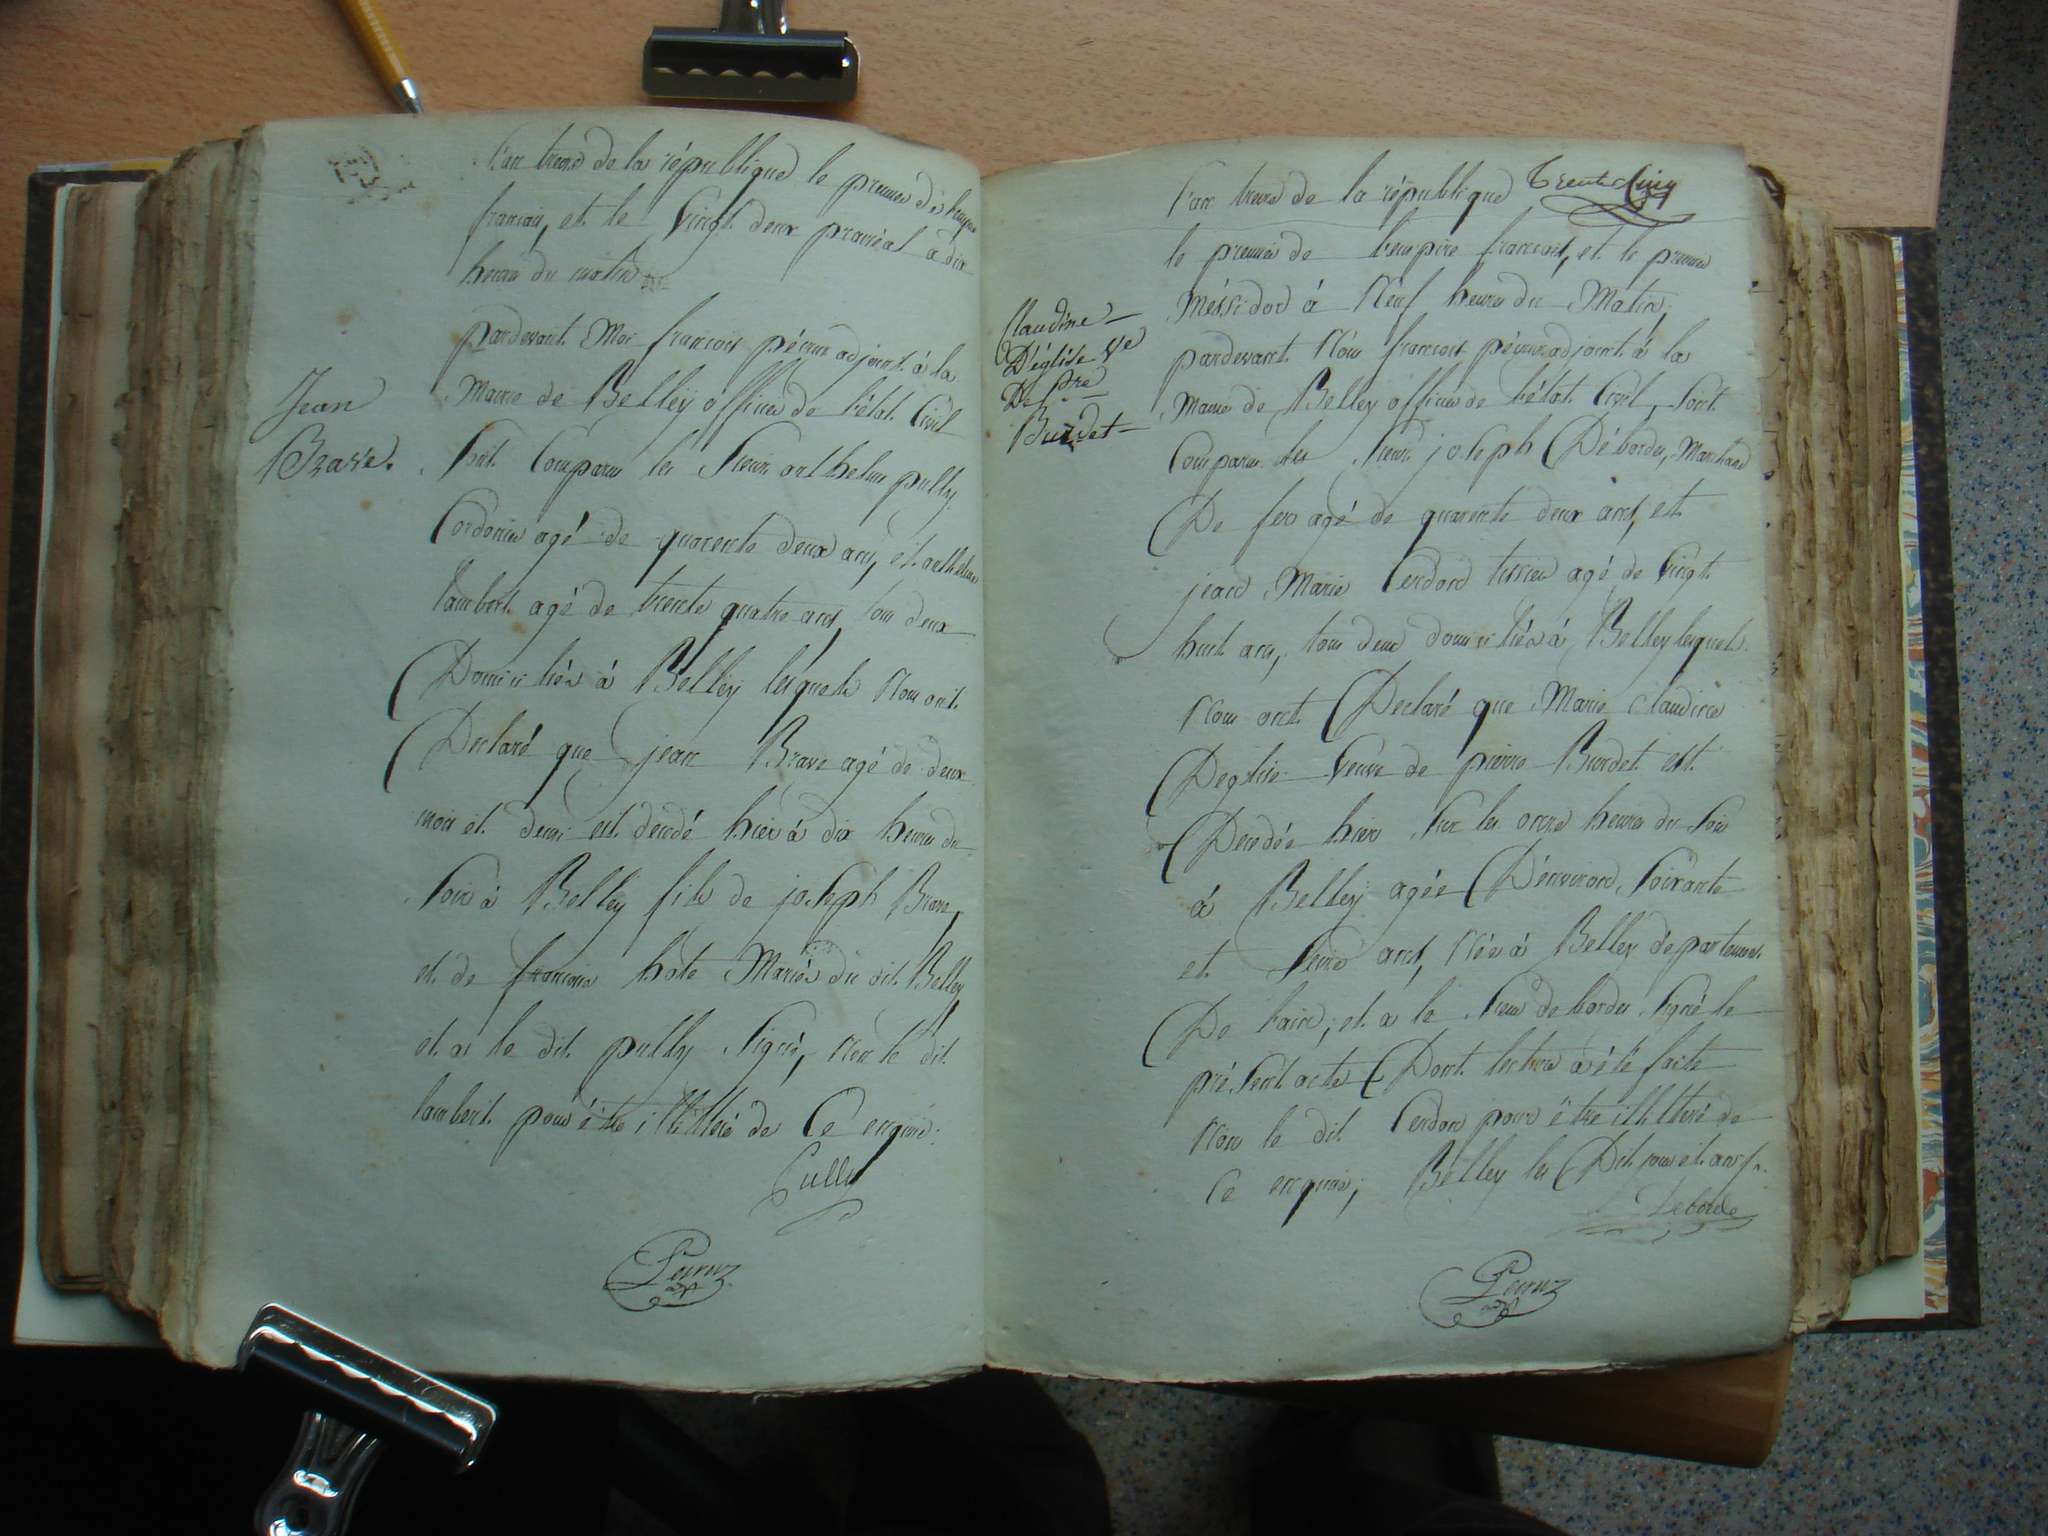 L'an treize de la république le premier de l'empire
francais, et le Vingt deux prairéal à dix
heures du matin
pardevant Moi francois pécrux adjoint à la
Mairie de Belley officier de l'état Civil
Jean
Brave.
Sont Comparus les Sieurs anthelme pully
Cordonier agé de quarente deux ans, et anthelme
lambert agé de trente quatre ans, tous deux
Domiciliés à Belley lesquels Nous ont
Declaré que jean Brave agé de deux
mois et demi est decédé hier à dix heures du
Soir à Belley fils de joseph Brave,
et de francoise hote Mariés du dit Belley
et a le dit pully Signé, Non le dit
lambert pour être illitteré de Ce enquis.
Pully
Pecruz
L'an treize de la république
Trente Cinq
le premier de l'empire francois, et le premier
Méssidor à Neuf heures du Matin,
Claudine
D'église Ve
De Pre
Burdet
pardevant Nous francois pécrux adjoint à la
Mairie de Belley officier de l'état Civil, Sont
Comparus les Sieurs joseph Débordes, Marchand
De fer agé de quarente deux ans, et
jean Marie Cerdon tissier agé de Vingt
huit ans, tous deux domiciliés à Belley lesquels
Nous ont Declaré que Marie Claudine
Deglise Veuve de pierre Burdet est
Decedée hier Sur les onze heures du Soir
à Belley agée D'environ Soixante
et Seize ans, Née à Belley départment
De l'ain, et a le Sieur debordes Signé le
présent acte Dont lecture a été faite
Non le dit Cerdon pour être illitteré de
Ce enquis, Belley les Dit jour et an
Deborde
Pecruz